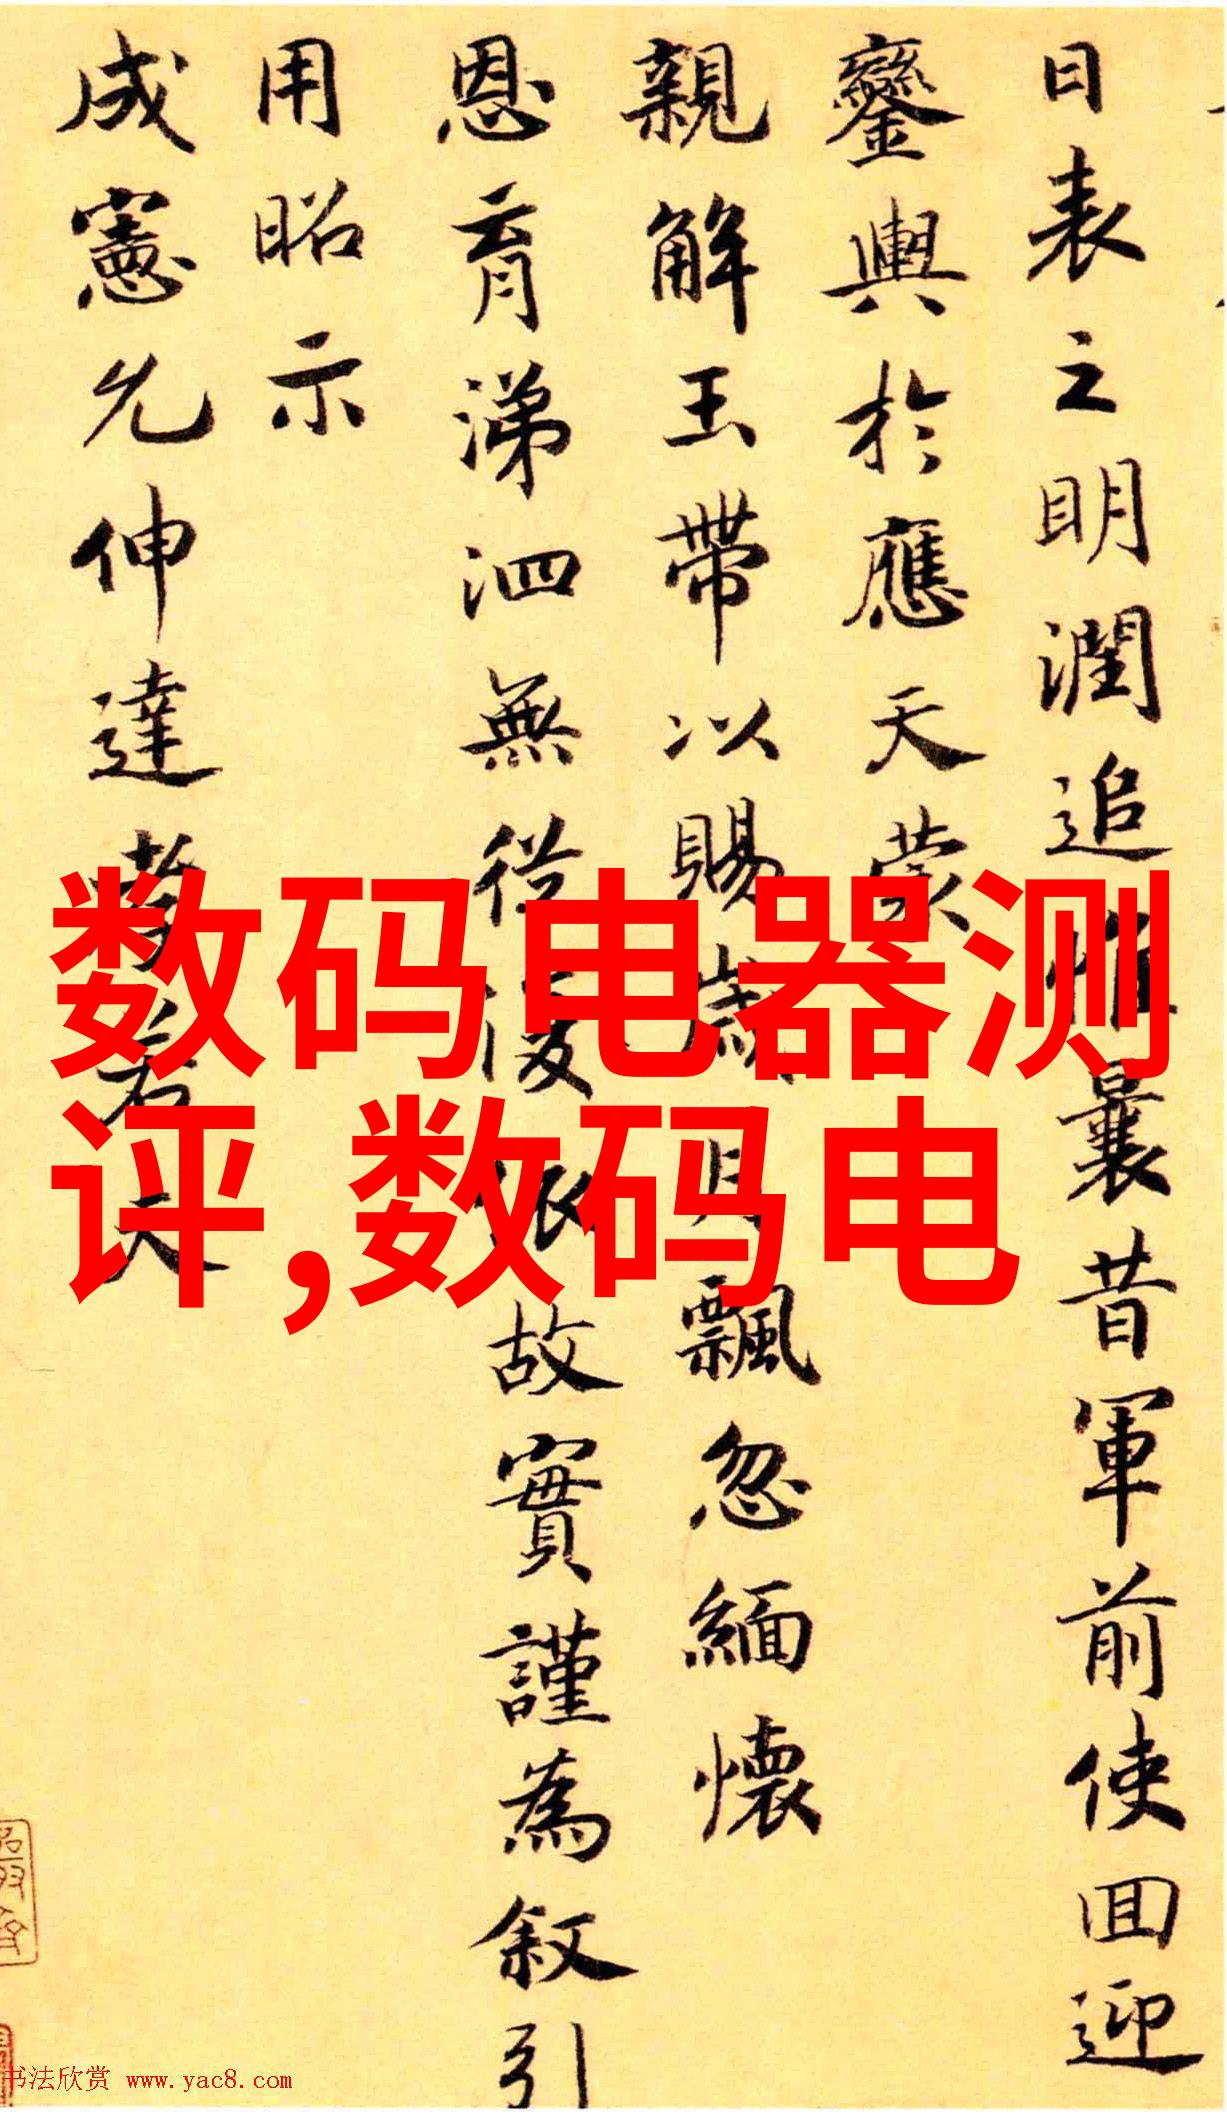 日表之明潤追惟曩昔軍前使回迎
鑾輿於應天蒙
親解玉帶以賜歲月飄忽緬懷
恩育涕泗無從復依故實謹為叙引
用昭示
成憲允伸達孝若夫
数码电器测
评,数码电
书法欣赏 www.yac8.com